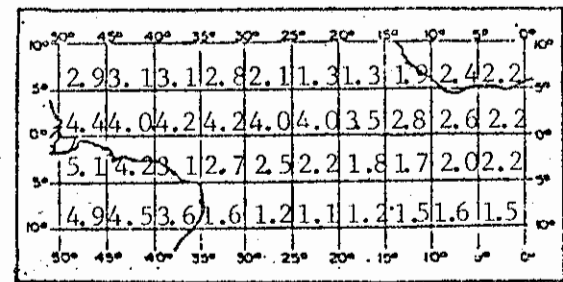 50° 45° 40° 35° 30° 25° 20° 15° 10° 5° 0°
10° 10°
2.9 3.1 3.1 2.8 2.1 1.3 1.3 1.9 2.4 2.2
5° 5°
4.4 4.0 4.2 4.2 4.0 4.0 3.5 2.8 2.6 2.2
0° 0°
5.1 4.2 3.1 2.7 2.5 2.2 1.8 1.7 2.0 2.2
5° 5°
4.9 4.5 3.6 1.6 1.2 1.1 1.2 1.5 1.6 1.5
10° 10°
50° 45° 40° 35° 30° 25° 20° 15° 10° 5° 0°